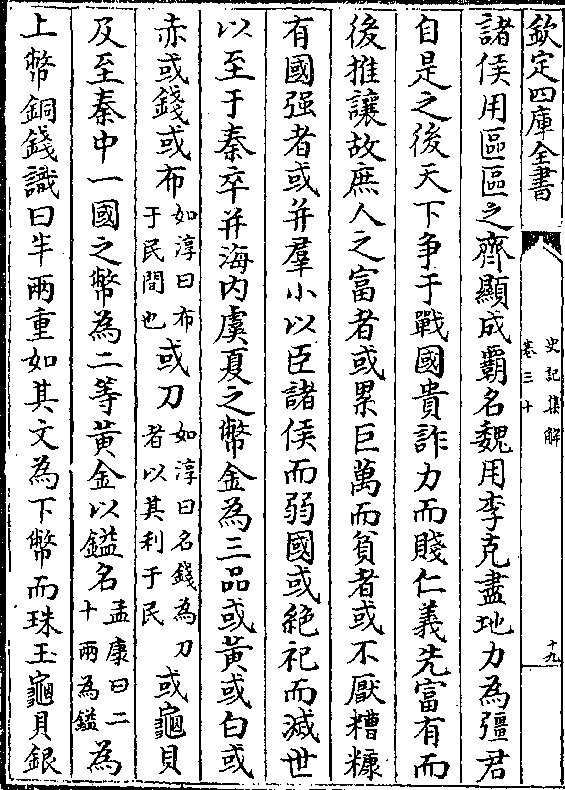 欽定四庫全書
史記集解
卷三十
十九
諸侯用區區之齊顯成霸名魏用李克盡地力為彊君
自是之後天下争于戰國貴詐力而賤仁義先富有而
後推讓故庶人之富者或累巨萬而貧者或不厭糟糠
有國强者或并羣小以臣諸侯而弱國或絶祀而滅世
以至于秦卒并海内虞夏之幣金為三品或黄或白或
赤或錢或布如淳曰布于民間也或刀如淳曰名錢為刀者以其利于民或龜貝
及至秦中一國之幣為二等黄金以鎰名孟康曰二十兩為鎰為
上幣銅錢識曰半兩重如其文為下幣而珠玉龜貝銀